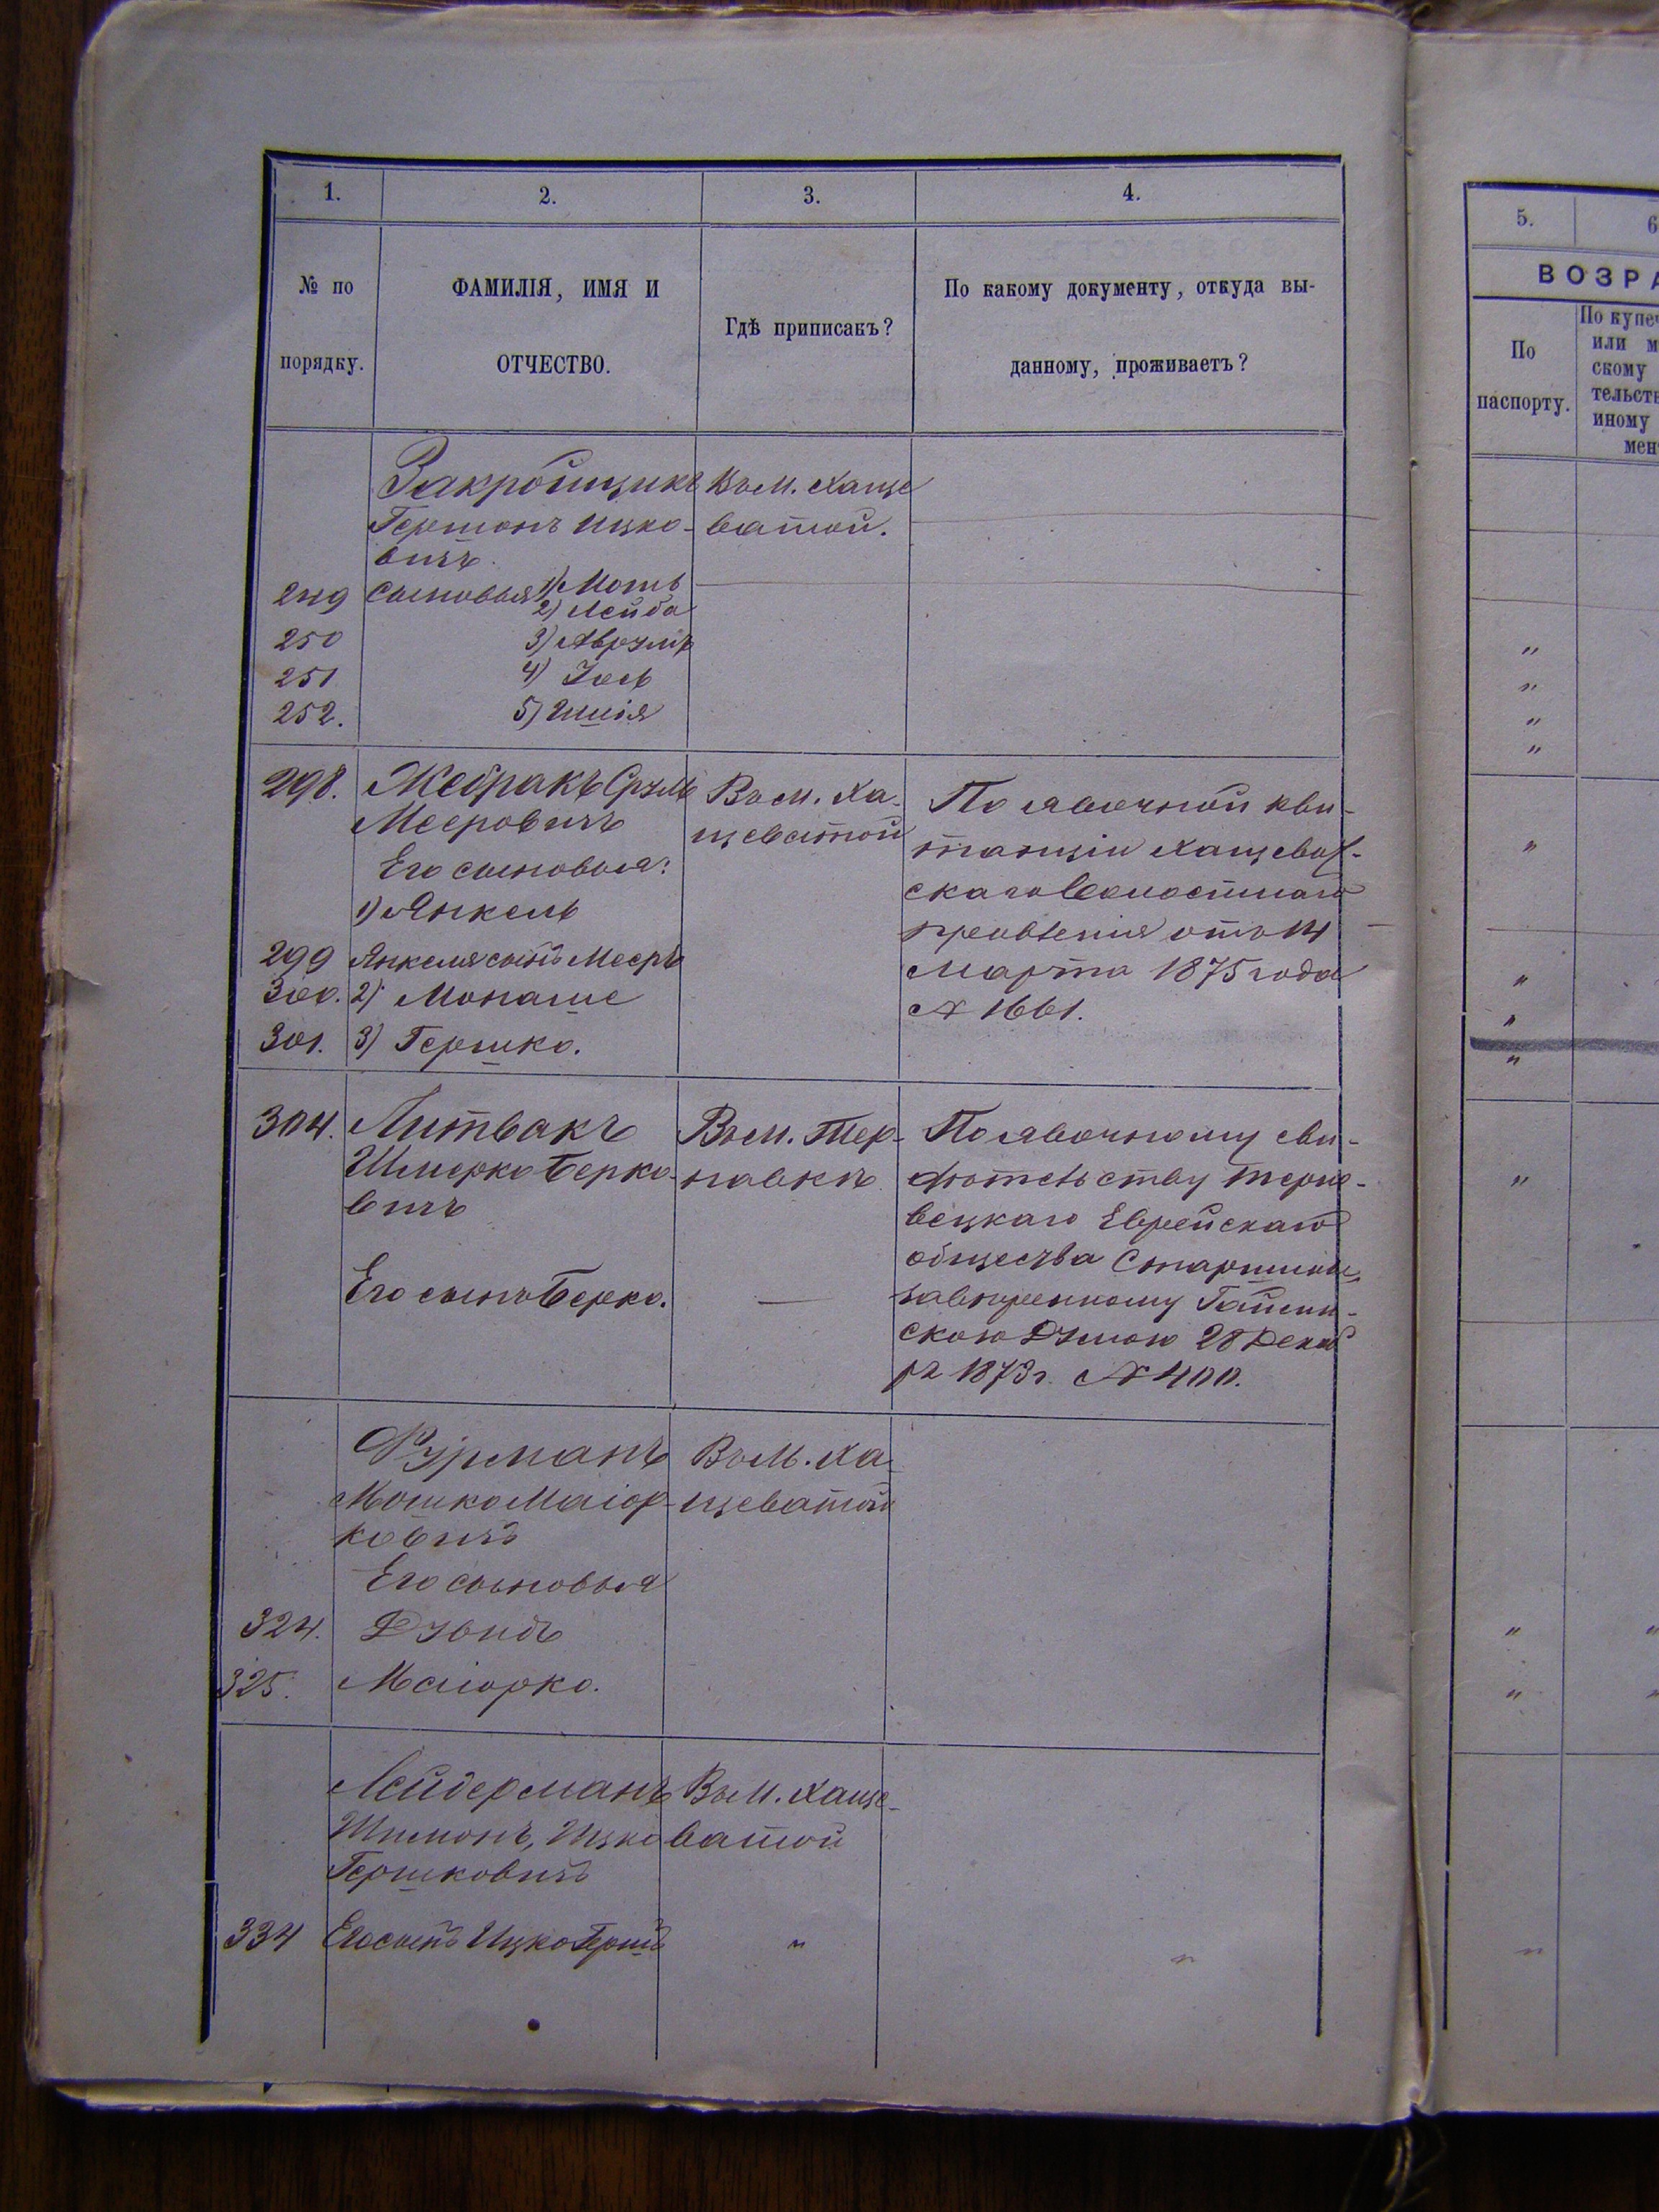 1.
2.
3.
4.
№ по
порядку.
ФАМИЛІЯ, ИМЯ И
ОТЧЕСТВО.
Гдѣ приписакъ?
По какому документу, откуда вы-
данному, проживаетъ?
Закройщикъ
Гершонъ Ицко-
вичъ
Въ м. Хаще
ватой.
249 Сыновья 1) Моть
2) Лейба
250 3) Аврумъ
251 4) Іось
252. 5) Шия
298. Жебракъ Сруль
Мееровичъ
Его сыновья:
1) Янкель
299 Янкеля сынъ Мееръ
300. 2) Монаше
301. 3) Гершко.
Въ м. Ха-
щеватой
По явочной кви-
танціи Хащеват-
скаго Волостнаго
Правленія отъ 14
Марта 1875 года
№ 1661.
304. Литвакъ
Шмерко Берко-
вичъ
Его сынъ Берко.
Въ м. Тер-
навкѣ
—
По явочному сви-
дѣтельству Терно-
вецкаго Еврейскаго
общества Старшины,
завѣренному Гайсин-
скою Думою 28 Декаб
ря 1873 г. № 400.
Фурманъ
Мошко Маіор-
ковичъ
Его сыновья
324. Дувидъ
325. Маіорко.
Въ м. Ха-
щеватой
Лейдерманъ
Шимонъ, Ицко
Гершковичъ
334 Его сынъ Ицко Гершъ
Въ м. Хаще-
ватой
"
"
5.
6
ВОЗРА
По
паспорту.
По купеч
или м
скому
тельств
иному
мен
"
"
"
"
"
"
"
"
"
"
"
"
"
"